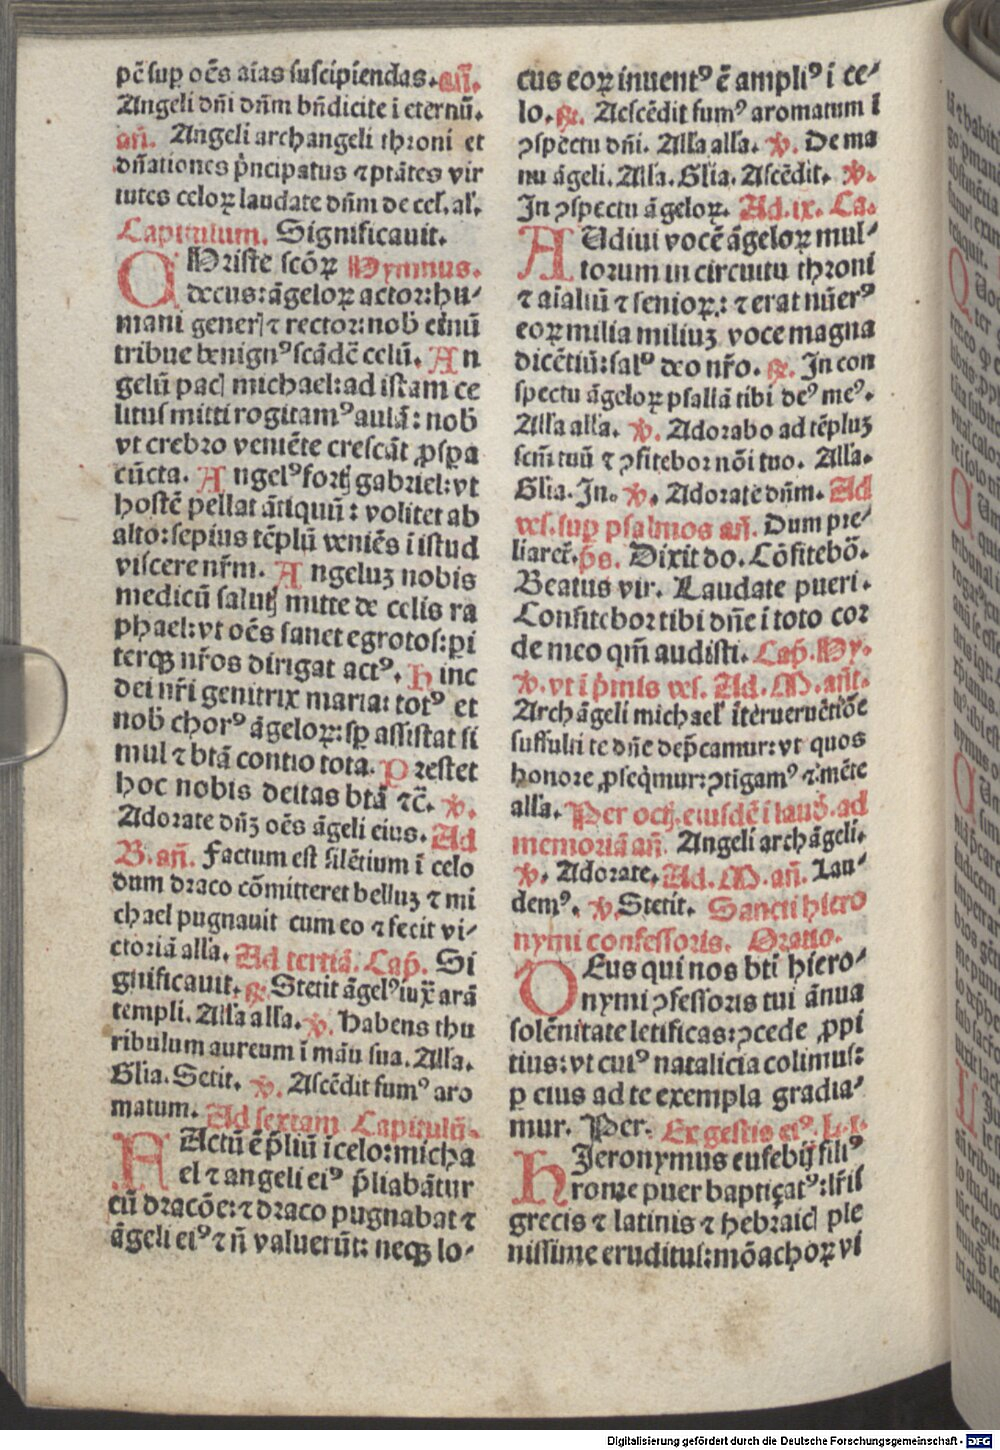 pc̄ suꝑ oc̄s aīas suscipiendas. an̄.
Angeli dn̄i dn̄m bn̄dicite ī eternū.
an̄. Angeli archangeli throni et
dn̄ationes p̄ncipatus ⁊ ptātes vir
tutes celoꝝ laudate dn̄m de cel̄. al̄.
Capitulum. Significauit.
CHriste scōꝝ Hymnus.
decus: āgeloꝝ actor: hu-
mani generꝭ ⁊ rector: nob̄ eīnū
tribue benignꝰ scādē celū. An
gelū pacꝭ michael: ad istam ce
litus mitti rogitamꝰ aulā: nob̄
vt crebro veniēte crescāt ꝓsꝑa
cūcta. Angelꝰ fortꝭ gabriel: vt
hostē pellat ātiquū: volitet ab
alto: sepius tēplū veniēs ī istud
viscere nr̄m. Angeluꝫ nobis
medicū salutꝭ mitte de celis ra
phael: vt oc̄s sanet egrotos: pi
terqꝫ nr̄os dirigat actꝰ. Hinc
dei nr̄i genitrix maria: totꝰ et
nob̄ chorꝰ āgeloꝝ: sꝑ assistat si
mul ⁊ btā contio tota. Prestet
hoc nobis deitas btā ⁊c̄. ℣.
Adorate dn̄ꝫ oēs āgeli eius. Ad
B. an̄. Factum est silētium ī celo
dum draco cōmitteret belluꝫ ⁊ mi
chael pugnauit cum eo ⁊ fecit vi-
ctoriā alla. Ad tertiā. Cap̄. Si
gnificauit. ℟. Stetit āgelꝰ iux̄ arā
templi. Alla alla. ℣. Habens thu
ribulum aureum ī māu sua. Alla.
Glia. Setit. ℣. Ascēdit fumꝰ aro
matum. Ad sextam Capitulū.
FActū ē p̄liū ī celo: micha
el ⁊ angeli eiꝰ p̄liabātur
cū dracōe: ⁊ draco pugnabat ⁊
āgeli eiꝰ ⁊ n̄ valuerūt: neqꝫ lo-
cus eoꝝ inuentꝰ ē ampliꝰ ī ce-
lo. ℟. Ascēdit fumꝰ aromatum ī
ꝯspectu dn̄i. Alla alla. ℣. De ma
nu āgeli. Alla. Glia. Ascēdit. ℣.
In ꝯspectu āgeloꝝ. Ad. ix. Ca.
AUdiui vocē āgeloꝝ mul-
torum in circuitu throni
⁊ aīaliū ⁊ senioꝝ: ⁊ erat nūerꝰ
eoꝝ milia miliuꝫ voce magna
dicētiū: salꝰ deo nr̄o. ℟. In con
spectu āgeloꝝ psallā tibi deꝰ meꝰ.
Alla alla. ℣. Adorabo ad tēpluꝫ
scm̄ tuū ⁊ ꝯfitebor nōi tuo. Alla.
Glia. In. ℣. Adorate dn̄m. Ad
ves. suꝑ psalmos an̄. Dum pre-
liaret̄. p̄s. Dixit do. Cōfitebō.
Beatus vir. Laudate pueri.
Confitebor tibi dn̄e ī toto cor
de meo qm̄ audisti. Cap̄. Hy.
℣. vt ī p̄mis ves. Ad. M. an̄t.
Archāgeli michael' īteruētiōe
suffulti te dn̄e dep̄camur: vt quos
honore ꝓseqm̄ur: ꝯtigamꝰ ⁊ mēte
alla. Per octꝭ. eiusdē ī laud̄. ad
memoriā an̄. Angeli archāgeli.
℣. Adorate. Ad. M. an̄. Lau-
demꝰ. ℣. Stetit. Sancti hiero
nymi confessoris. Oratio.
DEus qui nos bti hiero-
nymi ꝯfessoris tui ānua
solēnitate letificas: ꝯcede ꝓpi
tius: vt cuiꝰ natalicia colimus:
ꝑ eius ad te exempla gradia-
mur. Per. Ex gestis eiꝰ. L. I.
HIeronymus eusebij filiꝰ
rome puer baptiçatꝰ: lr̄is
grecis ⁊ latinis ⁊ hebraicꝭ ple
nissime eruditus: mōachoꝝ vi
Digitalisierung gefördert durch die Deutsche Forschungsgemeinschaft - DFG